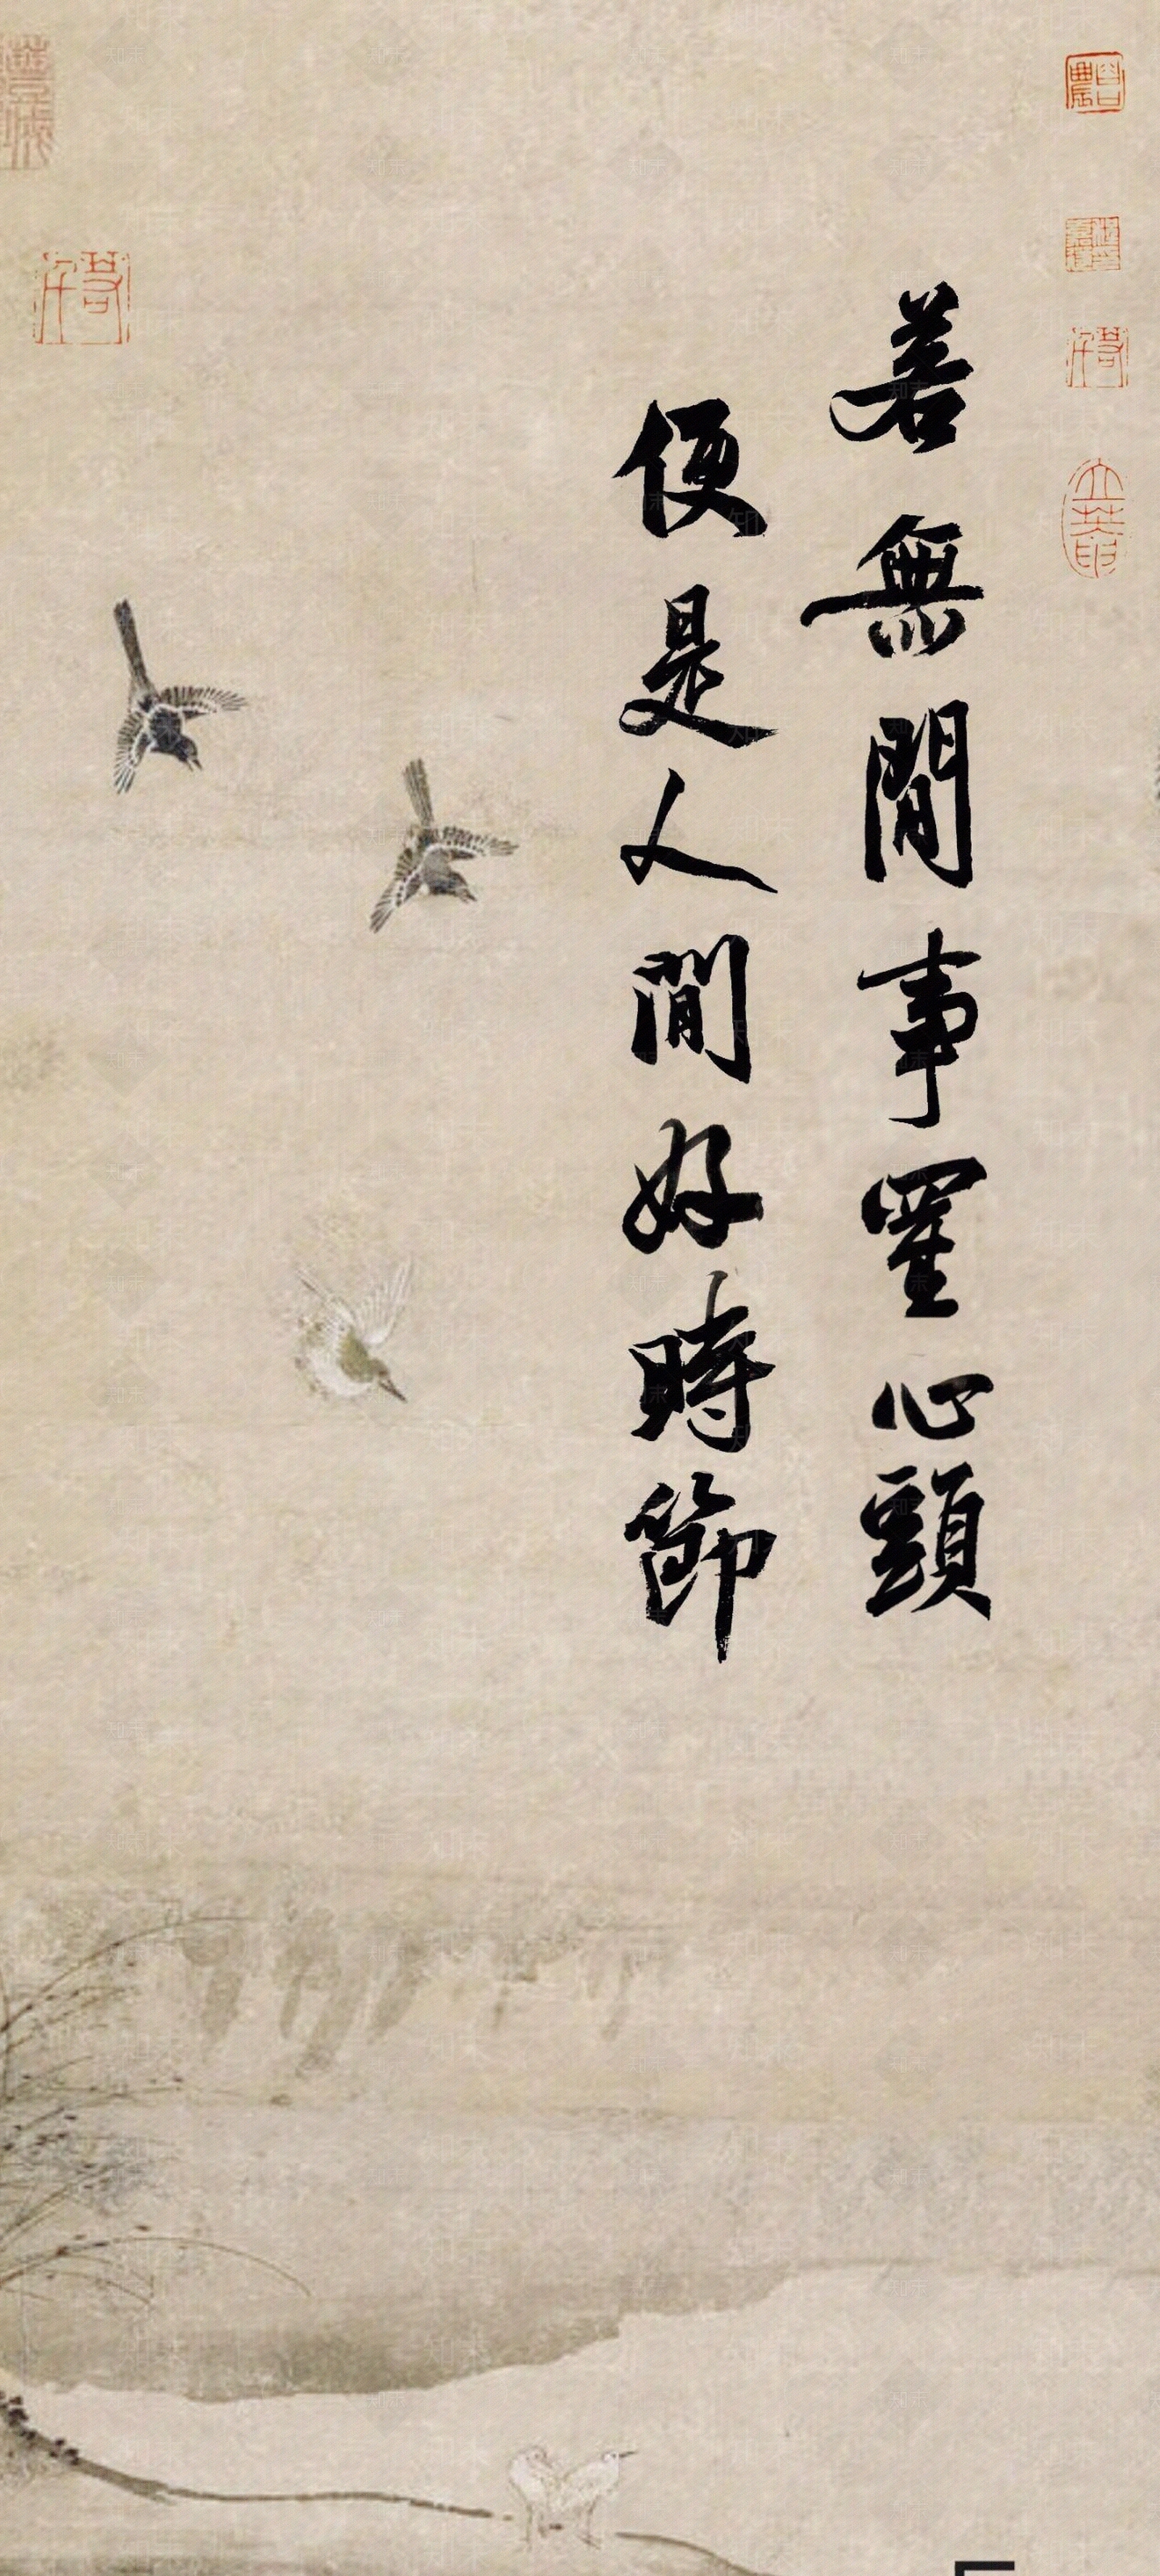 若無閒事罣心頭
便是人間好時節